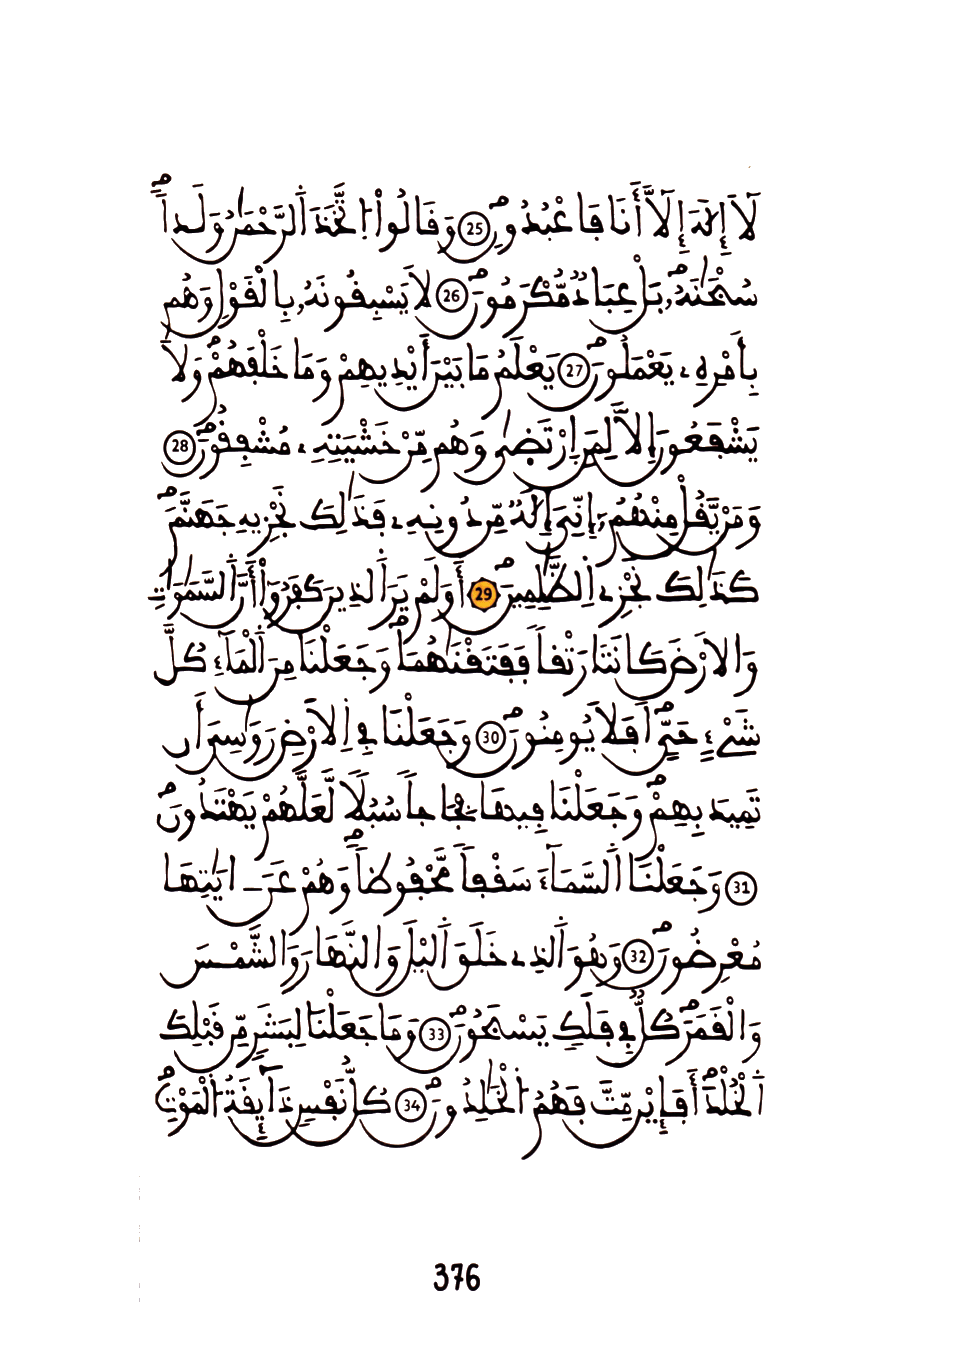 لَآ إِلَٰهَ إِلَّآ أَنَا فَاعْبُدُونِۖ 25 وَقَالُوا۟ اُ۪تَّخَذَ اَ۬لرَّحْمَٰنُ وَلَداٗۖ
سُبْحَٰنَهُۥۖ بَلْ عِبَادٞ مُّكْرَمُونَۖ 26 لَا يَسْبِقُونَهُۥ بِالْقَوْلِ وَهُم
بِأَمْرِهِۦ يَعْمَلُونَۖ 27 يَعْلَمُ مَا بَيْنَ أَيْدِيهِمْ وَمَا خَلْفَهُمْۖ وَلَا
يَشْفَعُونَ إِلَّا لِمَنِ اِ۪رْتَضَىٰ وَهُم مِّنْ خَشْيَتِهِۦ مُشْفِقُونَۖ 28
وَمَنْ يَّقُلْ مِنْهُمُۥٓ إِنِّيَ إِلَٰهٞ مِّن دُونِهِۦ فَذَٰلِكَ نَجْزِيهِ جَهَنَّمَۖ
كَذَٰلِكَ نَجْزِے اِ۬لظَّٰلِمِينَۖ 29 أَوَلَمْ يَرَ اَ۬لذِينَ كَفَرُوٓا۟ أَنَّ اَ۬لسَّمَٰوَٰتِ
وَالَارْضَ كَانَتَا رَتْقاٗ فَفَتَقْنَٰهُمَاۖ وَجَعَلْنَا مِنَ اَ۬لْمَآءِ كُلَّ
شَےْءٍ حَيٍّۖ اَفَلَا يُومِنُونَۖ 30 وَجَعَلْنَا فِے اِ۬لَارْضِ رَوَٰسِيَ أَن
تَمِيدَ بِهِمْۖ وَجَعَلْنَا فِيهَا فِجَاجاٗ سُبُلاٗ لَّعَلَّهُمْ يَهْتَدُونَۖ
31 وَجَعَلْنَا اَ۬لسَّمَآءَ سَقْفاٗ مَّحْفُوظاٗۖ وَهُمْ عَنَ اٰيَٰتِهَا
مُعْرِضُونَۖ 32 وَهُوَ اَ۬لذِے خَلَقَ اَ۬ليْلَ وَالنَّهَارَ وَالشَّمْسَ
وَالْقَمَرَۖ كُلّٞ فِے فَلَكٖ يَسْبَحُونَۖ 33 وَمَا جَعَلْنَا لِبَشَرٖ مِّن قَبْلِكَ
اَ۬لْخُلْدَۖ أَفَإِيْن مِّتَّ فَهُمُ اُ۬لْخَٰلِدُونَۖ 34 كُلُّ نَفْسٖ ذَآئِقَةُ اُ۬لْمَوْتِۖ
376